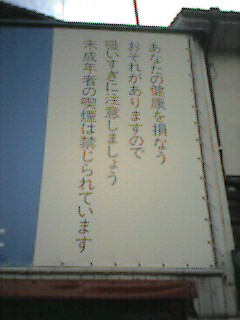 あなたの健康を損なう
おそれがありますので
吸いすぎに注意しましょう
未成年者の喫煙は禁じられています